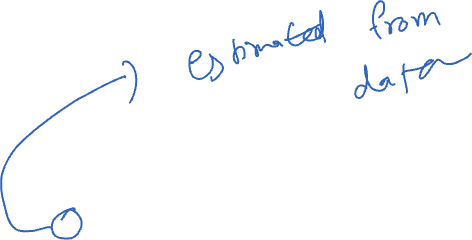 estimated from
data